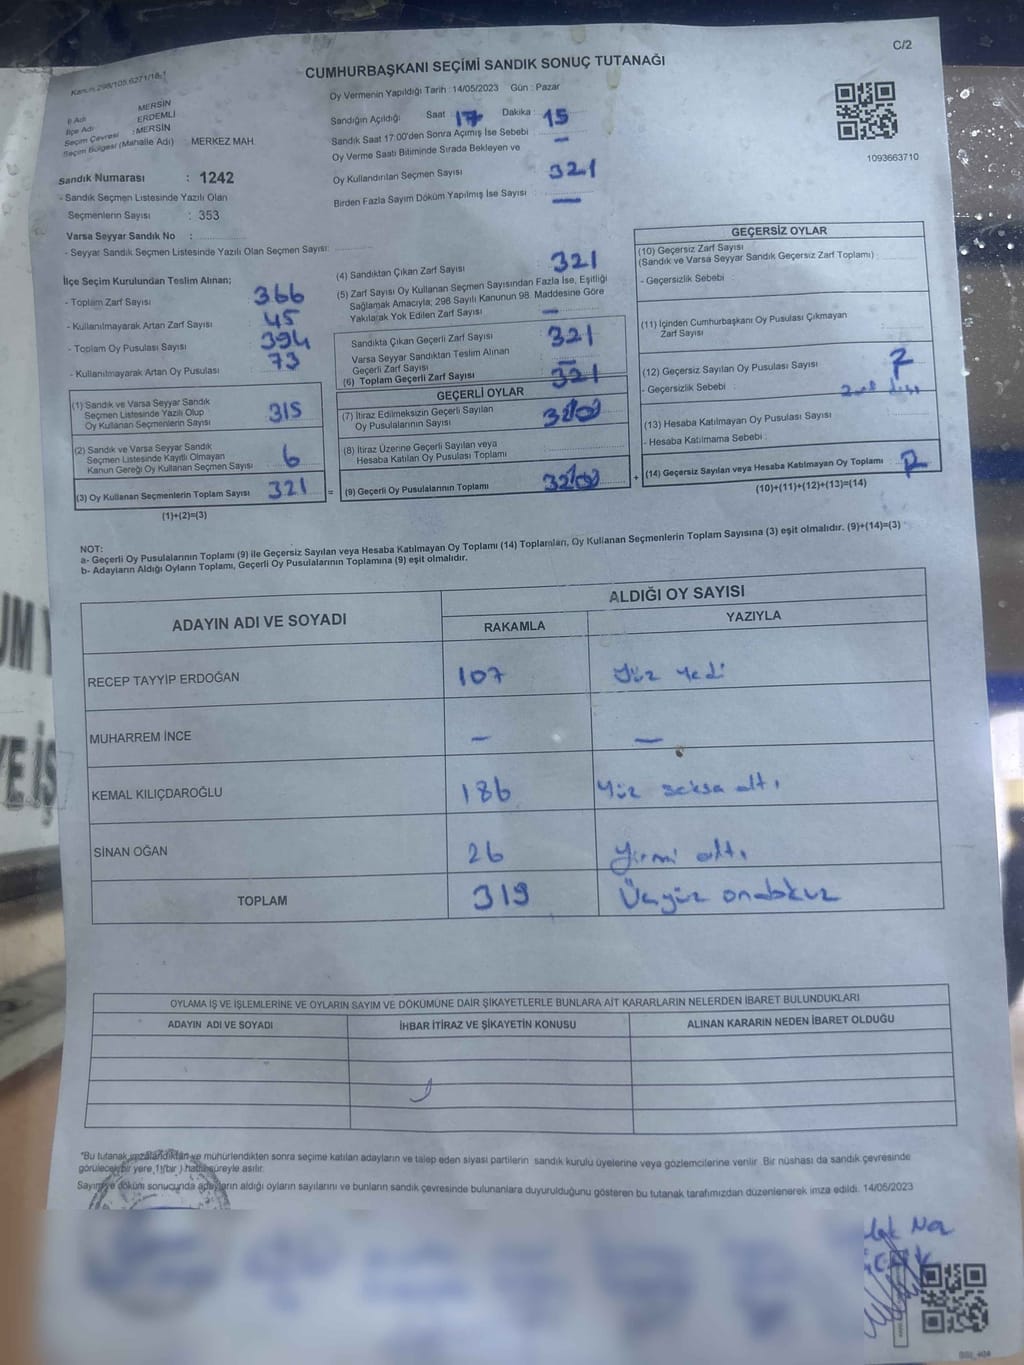 C/2
Kanun 298/105,6271/18-1
CUMHURBAŞKANI SEÇİMİ SANDIK SONUÇ TUTANAĞI
Oy Vermenin Yapıldığı Tarih : 14/05/2023 Gün : Pazar
İl Adı : MERSİN
İlçe Adı : ERDEMLİ
Seçim Çevresi : MERSİN
Seçim Bölgesi (Mahalle Adı) : MERKEZ MAH
Sandığın Açıldığı Saat : 17 Dakika : 15
Sandık Saat 17:00'den Sonra Açılmış İse Sebebi : —
Oy Verme Saati Bitiminde Sırada Bekleyen ve
Oy Kullandırılan Seçmen Sayısı : 321
Birden Fazla Sayım Döküm Yapılmış İse Sayısı : —
1093663710
Sandık Numarası : 1242
- Sandık Seçmen Listesinde Yazılı Olan
Seçmenlerin Sayısı : 353
Varsa Seyyar Sandık No :
- Seyyar Sandık Seçmen Listesinde Yazılı Olan Seçmen Sayısı:
İlçe Seçim Kurulundan Teslim Alınan;
- Toplam Zarf Sayısı : 366
- Kullanılmayarak Artan Zarf Sayısı : 45
- Toplam Oy Pusulası Sayısı : 394
- Kullanılmayarak Artan Oy Pusulası : 73
(1) Sandık ve Varsa Seyyar Sandık
Seçmen Listesinde Yazılı Olup
Oy Kullanan Seçmenlerin Sayısı : 315
(2) Sandık ve Varsa Seyyar Sandık
Seçmen Listesinde Kayıtlı Olmayan
Kanun Gereği Oy Kullanan Seçmen Sayısı : 6
(3) Oy Kullanan Seçmenlerin Toplam Sayısı : 321 =
(1)+(2)=(3)
(4) Sandıktan Çıkan Zarf Sayısı : 321
(5) Zarf Sayısı Oy Kullanan Seçmen Sayısından Fazla İse, Eşitliği
Sağlamak Amacıyla; 298 Sayılı Kanunun 98. Maddesine Göre
Yakılarak Yok Edilen Zarf Sayısı : —
Sandıkta Çıkan Geçerli Zarf Sayısı : 321
Varsa Seyyar Sandıktan Teslim Alınan
Geçerli Zarf Sayısı : —
(6) Toplam Geçerli Zarf Sayısı : 321
GEÇERLİ OYLAR
(7) İtiraz Edilmeksizin Geçerli Sayılan
Oy Pusulalarının Sayısı :
(8) İtiraz Üzerine Geçerli Sayılan veya
Hesaba Katılan Oy Pusulası Toplamı :
(9) Geçerli Oy Pusulalarının Toplamı : +
GEÇERSİZ OYLAR
(10) Geçersiz Zarf Sayısı
(Sandık ve Varsa Seyyar Sandık Geçersiz Zarf Toplamı) :
- Geçersizlik Sebebi :
(11) İçinden Cumhurbaşkanı Oy Pusulası Çıkmayan
Zarf Sayısı :
(12) Geçersiz Sayılan Oy Pusulası Sayısı :
- Geçersizlik Sebebi :
(13) Hesaba Katılmayan Oy Pusulası Sayısı :
- Hesaba Katılmama Sebebi :
(14) Geçersiz Sayılan veya Hesaba Katılmayan Oy Toplamı :
(10)+(11)+(12)+(13)=(14)
NOT:
a- Geçerli Oy Pusulalarının Toplamı (9) ile Geçersiz Sayılan veya Hesaba Katılmayan Oy Toplamı (14) Toplamları, Oy Kullanan Seçmenlerin Toplam Sayısına (3) eşit olmalıdır. (9)+(14)=(3)
b- Adayların Aldığı Oyların Toplamı, Geçerli Oy Pusulalarının Toplamına (9) eşit olmalıdır.
ADAYIN ADI VE SOYADI ALDIĞI OY SAYISI
RAKAMLA YAZIYLA
RECEP TAYYİP ERDOĞAN 107 Yüz yedi
MUHARREM İNCE — —
KEMAL KILIÇDAROĞLU 186 Yüz seksa altı
SİNAN OĞAN 26 Yirmi altı
TOPLAM 319 Üçyüz ondokuz
OYLAMA İŞ VE İŞLEMLERİNE VE OYLARIN SAYIM VE DÖKÜMÜNE DAİR ŞİKAYETLERLE BUNLARA AİT KARARLARIN NELERDEN İBARET BULUNDUKLARI
ADAYIN ADI VE SOYADI İHBAR İTİRAZ VE ŞİKAYETİN KONUSU ALINAN KARARIN NEDEN İBARET OLDUĞU
"Bu tutanak imzalandıktan ve mühürlendikten sonra seçime katılan adayların ve talep eden siyasi partilerin sandık kurulu üyelerine veya gözlemcilerine verilir. Bir nüshası da sandık çevresinde
görülecek bir yere 1 (bir) hafta süreyle asılır.
Sayım ve döküm sonucunda adayların aldığı oyların sayılarını ve bunların sandık çevresinde bulunanlara duyurulduğunu gösteren bu tutanak tarafımızdan düzenlenerek imza edildi. 14/05/2023